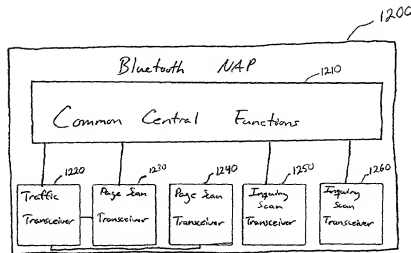 1200
Bluetooth NAP
1210
Common Central Functions
1220 1230 1240 1250 1260
Traffic Transceiver
Page Scan Transceiver
Page Scan Transceiver
Inquiry Scan Transceiver
Inquiry Scan Transceiver